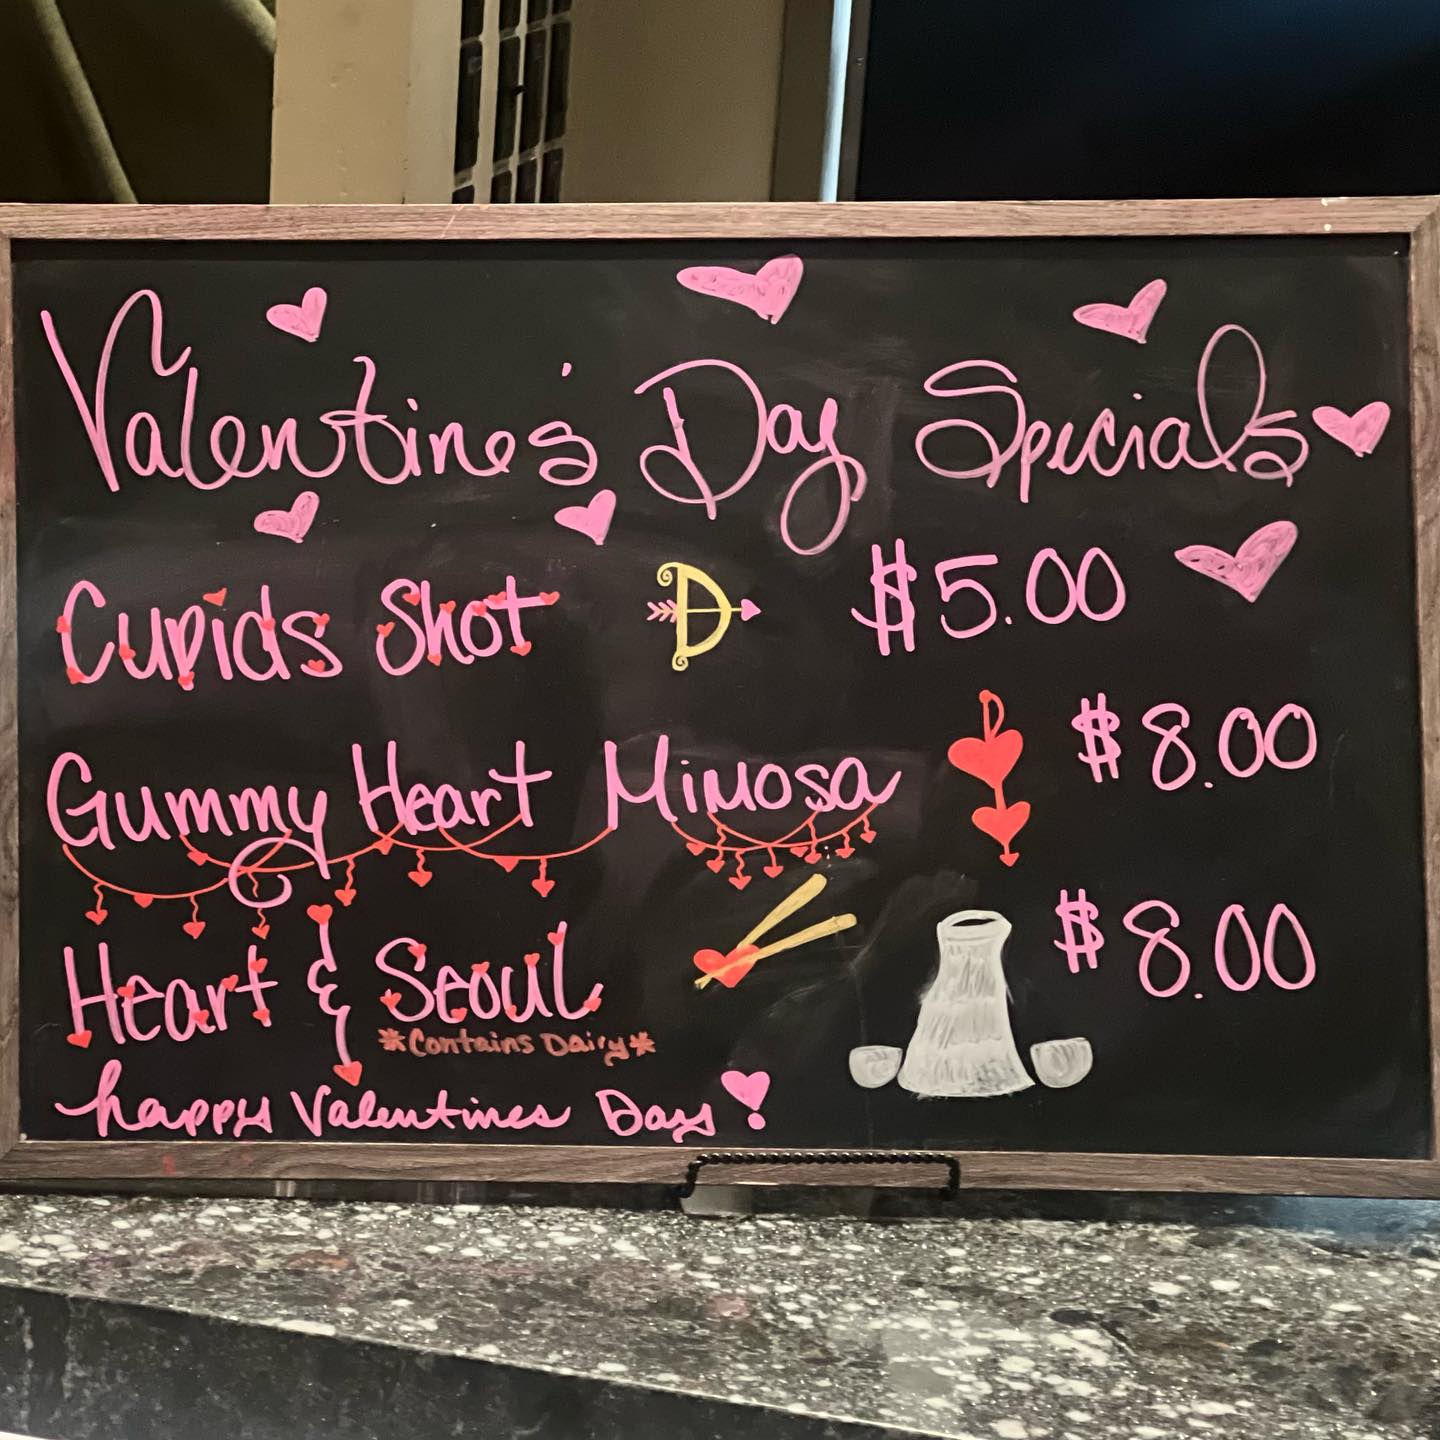 Valentine's Day Specials
Cupids Shot $5.00
Gummy Heart Mimosa $8.00
Heart & Seoul $8.00
*Contains Dairy*
happy Valentines Day!